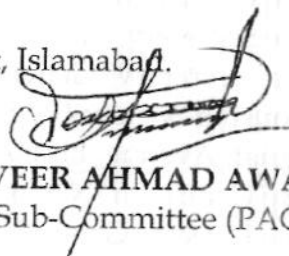 , Islamabad.
VEER AHMAD AWA
Sub-Committee (PAC